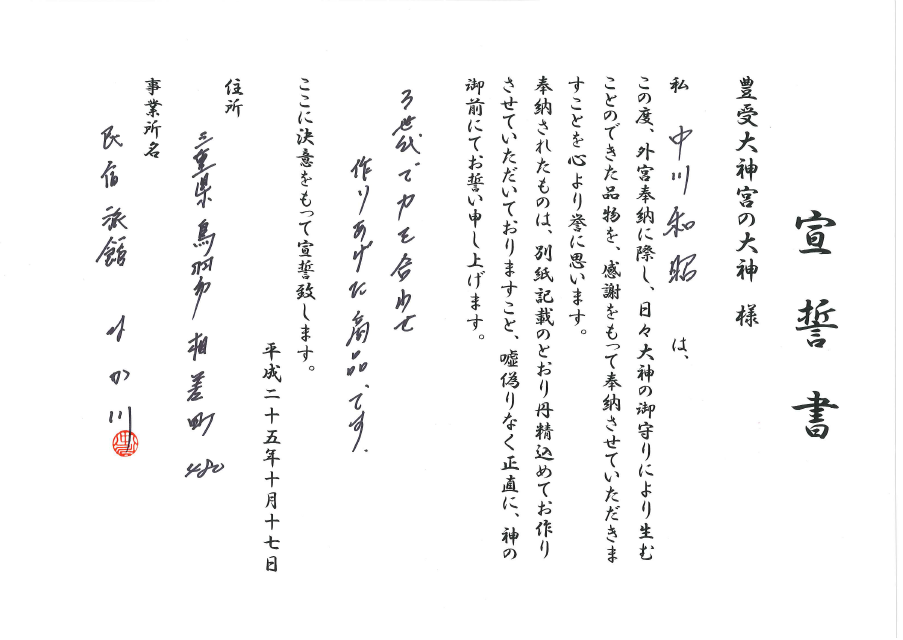 宣誓書
豊受大神宮の大神 様
私 中川和昭 は、
この度、外宮奉納に際し、日々大神の御守りにより生む
ことのできた品物を、感謝をもって奉納させていただきま
すことを心より誉に思います。
奉納されたものは、別紙記載のとおり丹精込めてお作り
させていただいておりますこと、嘘偽りなく正直に、神の
御前にてお誓い申し上げます。
3世代で力を合わせ
作りあげた商品です.
ここに決意をもって宣誓致します。
平成二十五年十月十七日
住所
三重県鳥羽市相差町480
事業所名
民宿旅館 なか川